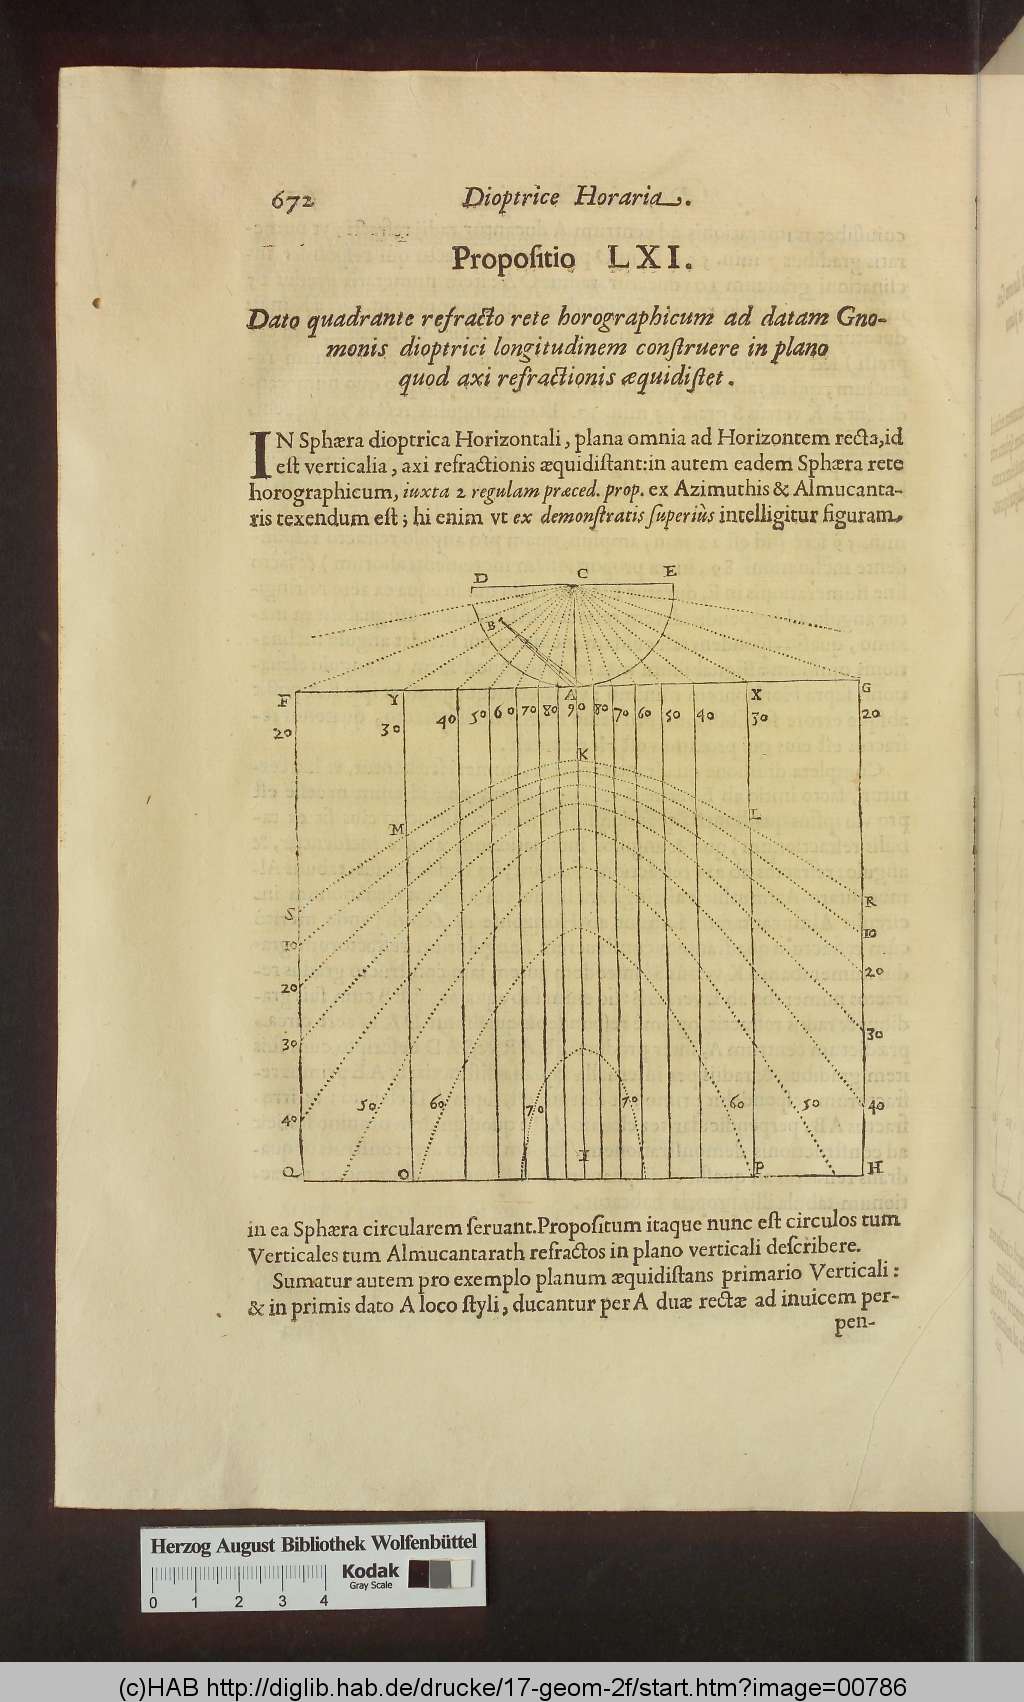 672 Dioptrice Horaria.
Propositio LXI.
Dato quadrante refracto rete horographicum ad datam Gno-
monis dioptrici longitudinem construere in plano
quod axi refractionis æquidistet.
IN Sphæra dioptrica Horizontali, plana omnia ad Horizontem recta, id
est verticalia, axi refractionis æquidistant: in autem eadem Sphæra rete
horographicum, iuxta 2 regulam præced. prop. ex Azimuthis & Almucanta-
ris texendum est; hi enim vt ex demonstratis superiùs intelligitur figuram
D C E
B
F Y A X G
20 30 40 50 60 70 80 90 80 70 60 50 40 30 20
K
M L
S R
10 10
20 20
30 30
40 50 60 70 70 60 50 40
Q O I P H
in ea Sphæra circularem seruant. Propositum itaque nunc est circulos tum
Verticales tum Almucantarath refractos in plano verticali describere.
Sumatur autem pro exemplo planum æquidistans primario Verticali:
& in primis dato A loco styli, ducantur per A duæ rectæ ad inuicem per-
pen-
Herzog August Bibliothek Wolfenbüttel
Kodak
Gray Scale
0 1 2 3 4
(c)HAB http://diglib.hab.de/drucke/17-geom-2f/start.htm?image=00786